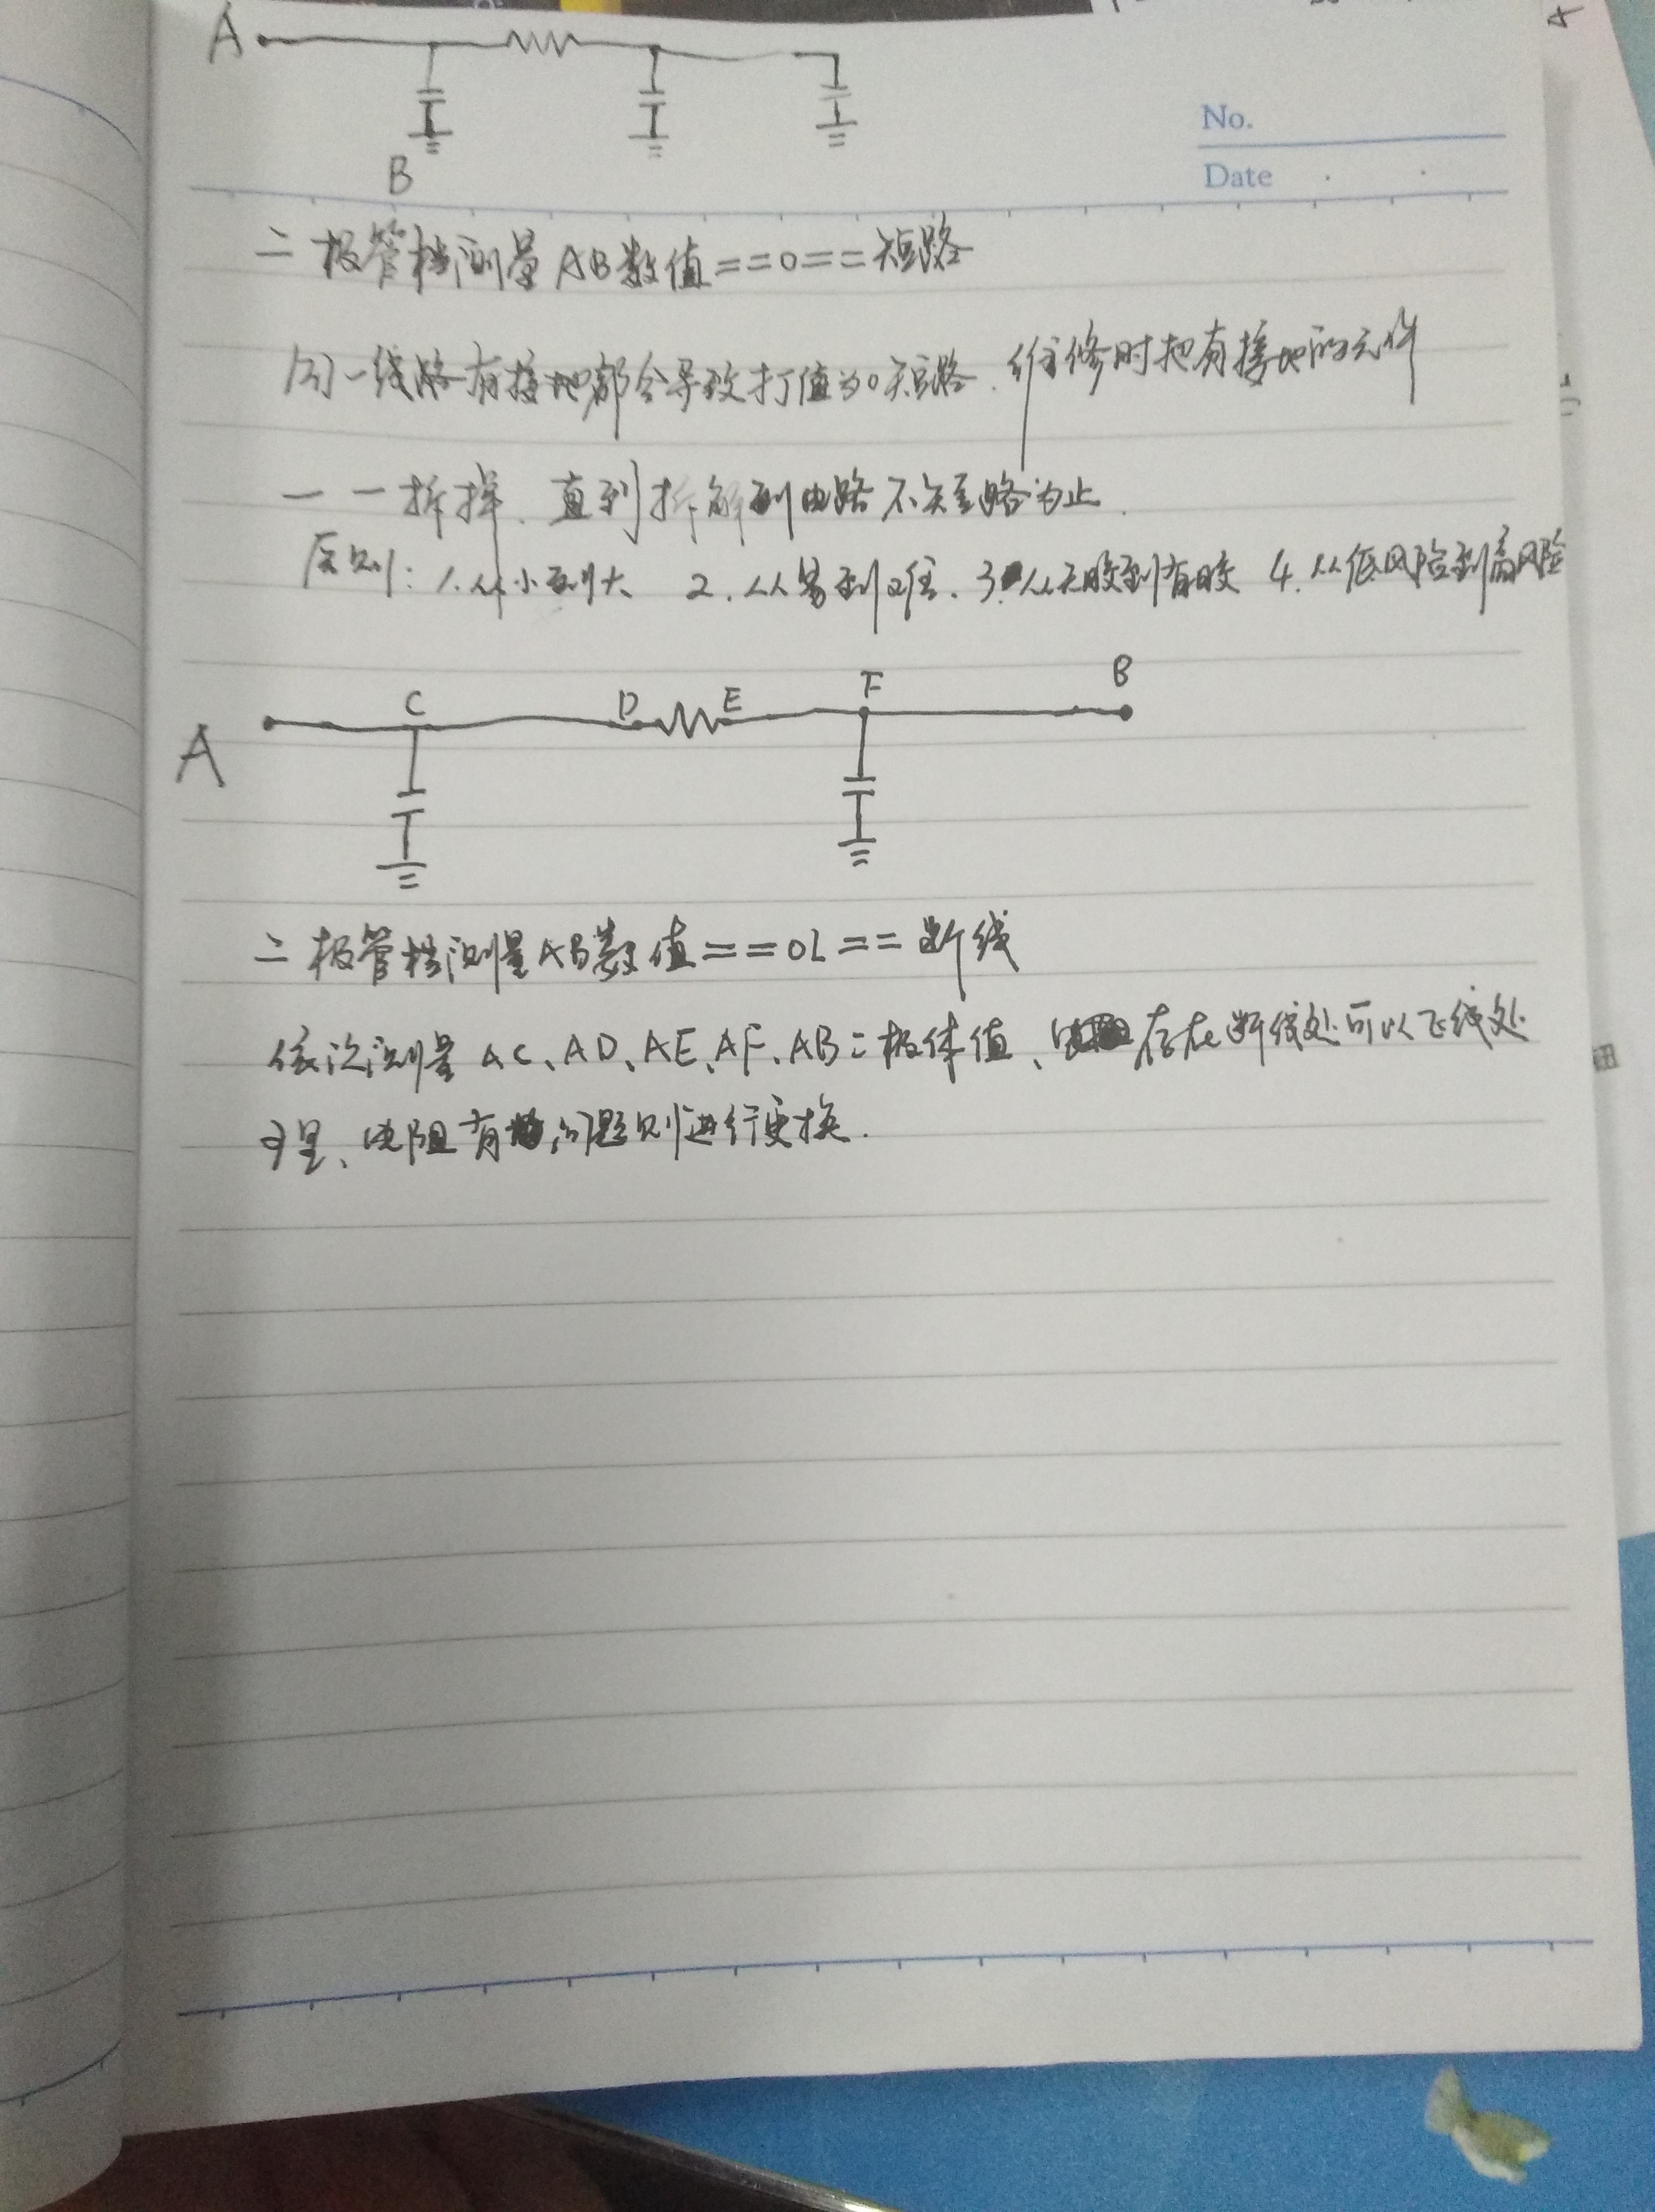 A
B
No.
Date
二极管档测量AB数值==0==短路
同一线路有接地都会导致打值为0短路、维修时把有接地的元件
一一拆掉、直到拆解到电路不短路为止.
原则: 1.从小到大 2.从易到难、3.从无胶到有胶 4.从低风险到高风险
A C D E F B
二极管档测量AB数值==OL==断线
依次测量AC、AD、AE、AF、AB二极体值、存在断线处可以飞线处
理、电阻有问题则进行更换.